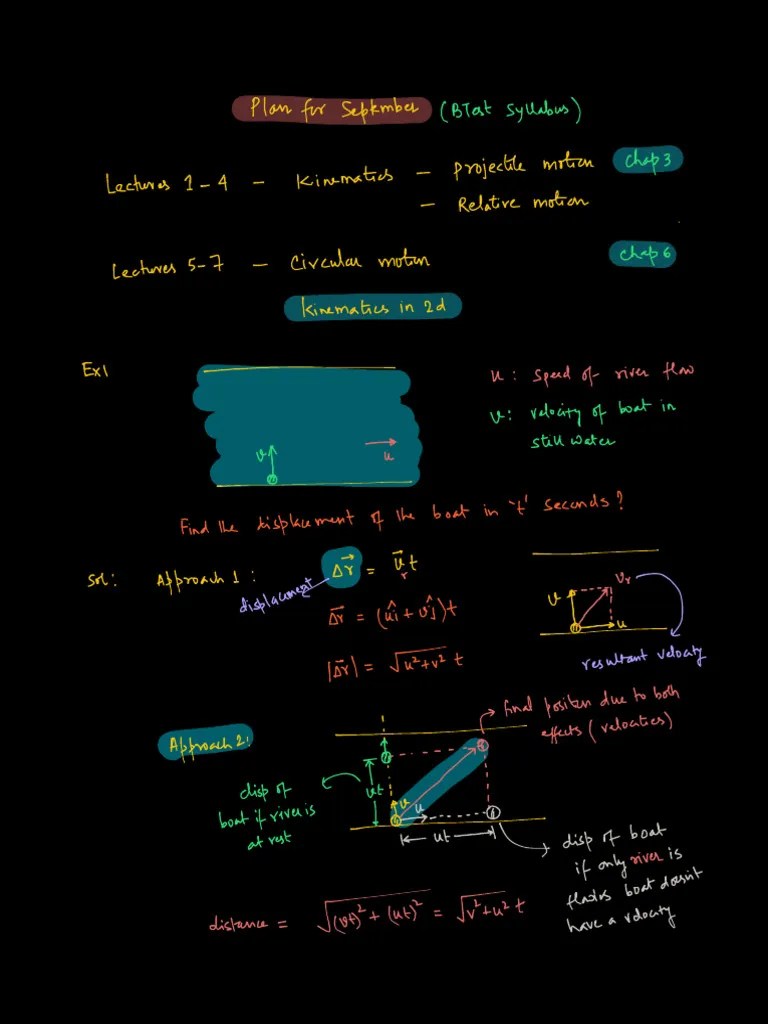 Plan for September (BTest Syllabus)
Lectures 1-4 - Kinematics - Projectile motion Chap 3
- Relative motion
Lectures 5-7 - Circular motion Chap 6
Kinematics in 2d
Ex1
u: speed of river flow
v: velocity of boat in
still water
v
u
Find the displacement of the boat in 't' seconds?
Sol: Approach 1: Δr⃗ = v⃗ᵣt
displacement
Δr⃗ = (uî + vĵ)t
|Δr⃗| = √(u²+v²) t
v
vᵣ
u
resultant velocity
final position due to both
effects (velocities)
Approach 2:
disp of
boat if river is
at rest
vt
v
u
ut
disp of boat
if only river is
boat doesn't
have a velocity
distance = √((vt)² + (ut)²) = √(v²+u²) t